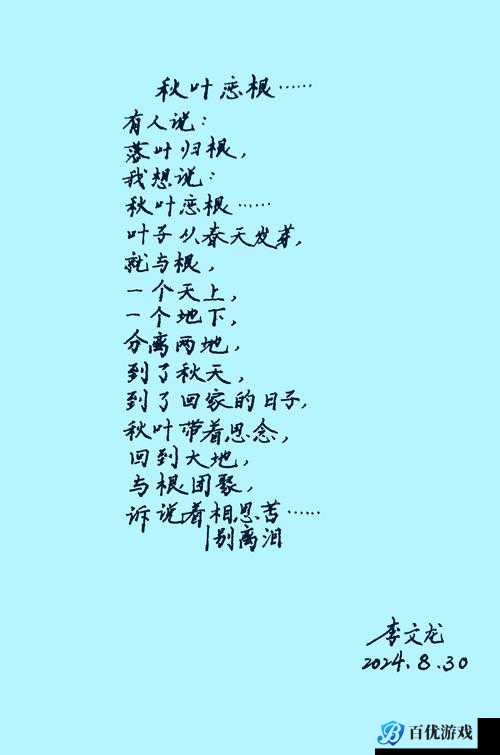 秋叶恋根……
有人说：
落叶归根，
我想说：
秋叶恋根……
叶子从春天发芽，
就与根，
一个天上，
一个地下，
分离两地，
到了秋天，
到了回家的日子，
秋叶带着思念，
回到大地，
与根团聚，
诉说着相思苦……
别离泪
李文龙
2024.8.30
百优游戏